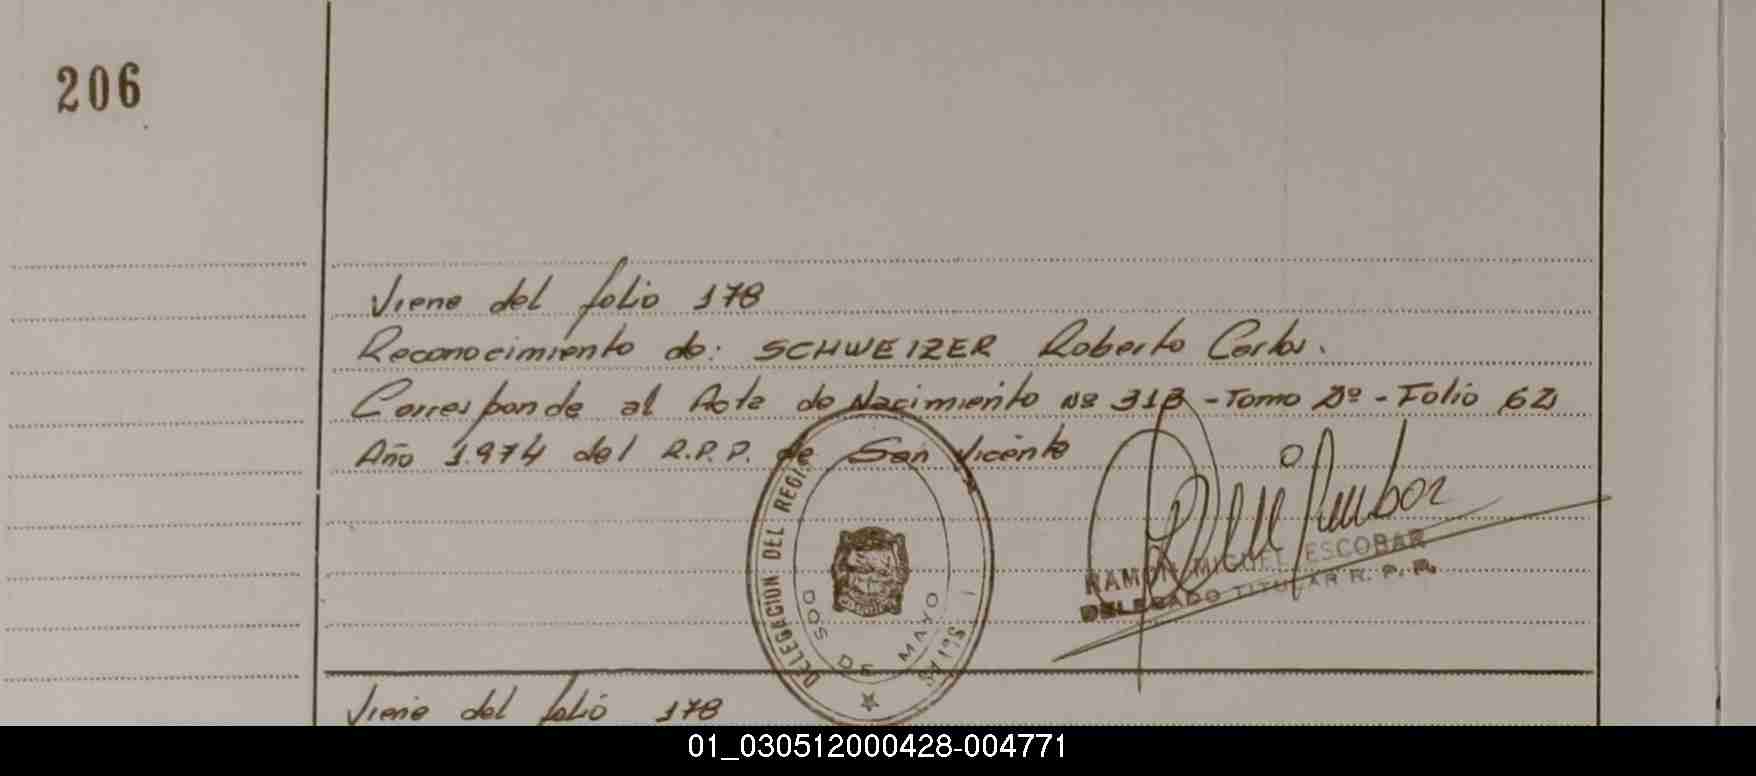 206
Viene del folio 178
Reconocimiento de: SCHWEIZER Roberto Carlos.
Corresponde al Acta de Nacimiento Nº 313 - Tomo 2º - Folio 62
Año 1.974 del R.P.P. de San Vicente
DELEGACION DEL REGI
DOS DE MAYO
RAMON MIGUEL ESCOBAR
DELEGADO TITULAR R. P. P.
Viene del folio 178
01_030512000428-004771